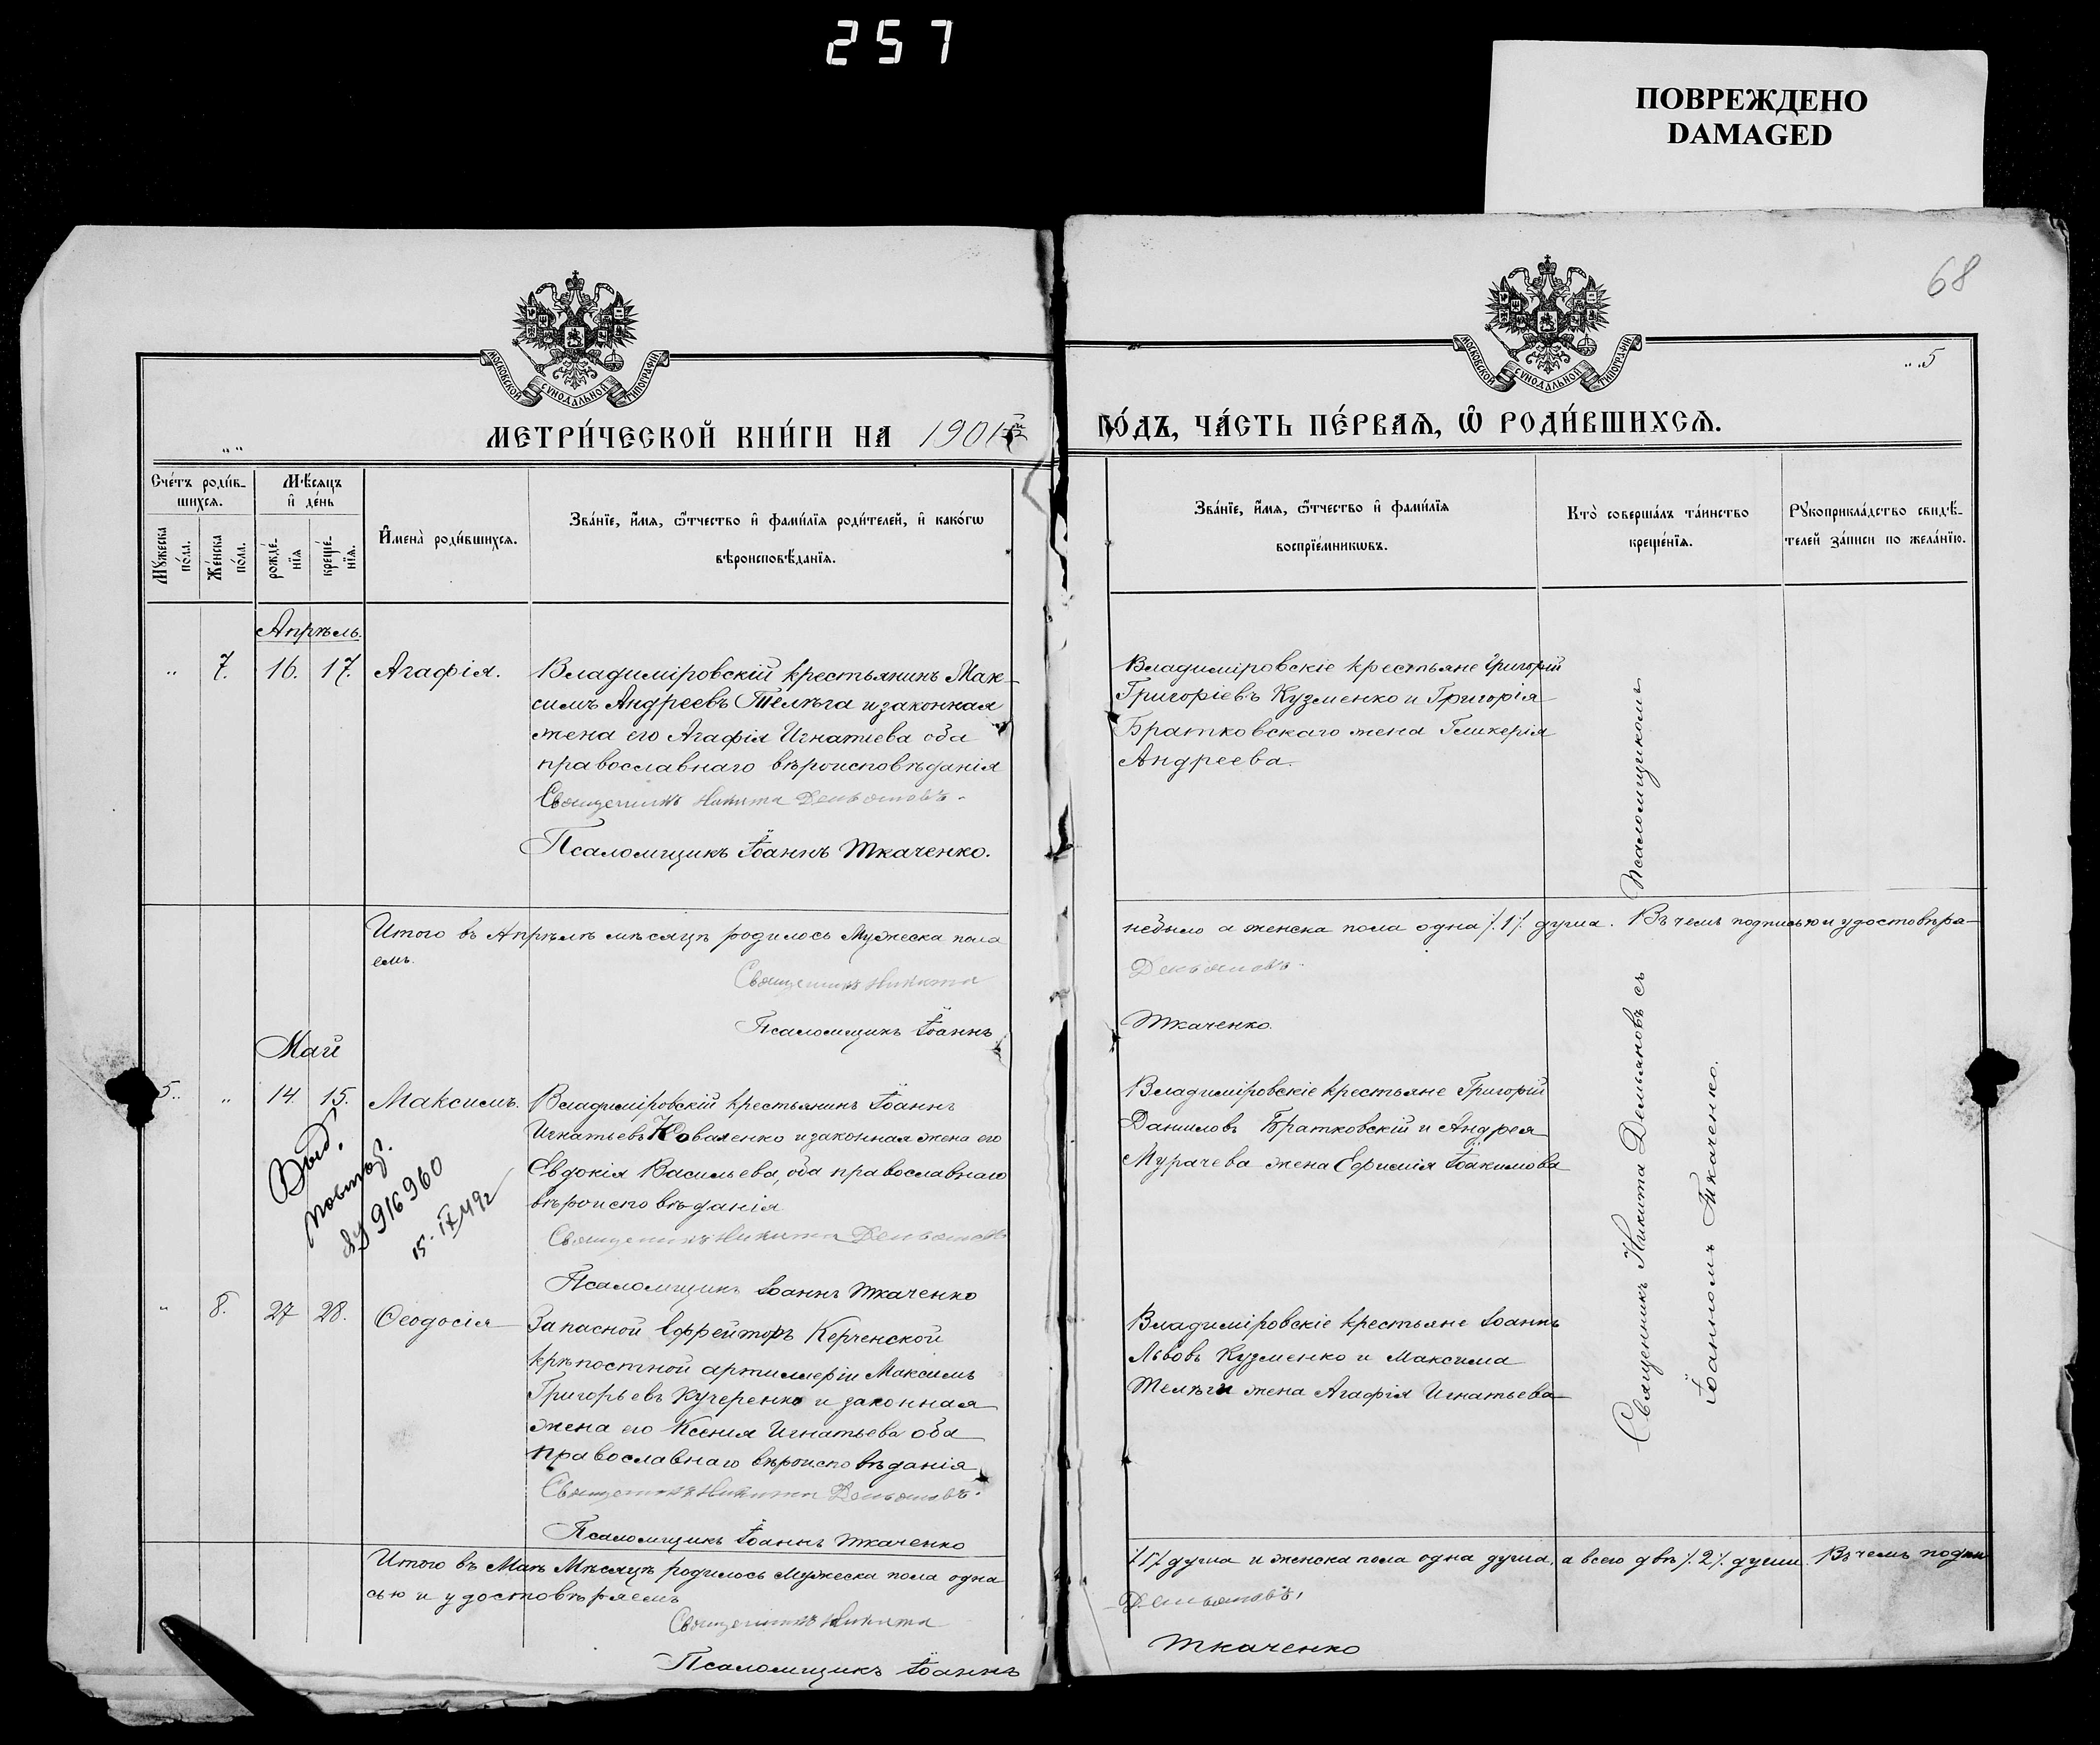 257
ПОВРЕЖДЕНО
DAMAGED
68
МОСКОВСКОЙ СѴНОДАЛЬНОЙ ТИПОГРАФІИ
МОСКОВСКОЙ СѴНОДАЛЬНОЙ ТИПОГРАФІИ
5
МЕТРИ́ЧЕСКОЙ КНИ́ГИ НА 1901й
ГО́ДЪ, ЧА́СТЬ ПЕ́РВАѦ, Ѡ҆ РОДИ́ВШИХСѦ.
Сче́тъ роди́в-
шихсѧ.
Мꙋжеска по́ла.
Же́нска по́ла.
Мѣ́сѧцъ
и҆ де́нь
рожде́-
нїѧ
креще́-
нїѧ.
И҆мена̀ роди́вшихсѧ.
Зва́нїе, и҆́мѧ, ѻ҆́тчество и҆ фами́лїѧ роди́телей, и҆ како́гѡ
вѣроисповѣ́данїѧ.
Зва́нїе, и҆́мѧ, ѻ҆́тчество и҆ фами́лїѧ
воспрїе́мникѡвъ.
Кто̀ соверша́лъ та́инство
креще́нїѧ.
Рꙋкоприкла́дство свидѣ́-
телей за́писи по жела́нїю.
Апрѣль.
" 7. 16. 17. Агафія.
Владиміровскій крестьянинъ Мак-
симъ Андреевъ Телѣга и законная
жена его Агафія Игнатіева оба
православнаго вѣроисповѣданія
Священникъ Никита Демьяновъ.
Псаломщикъ Іоаннъ Ткаченко.
Владиміровскіе крестьяне Григорій
Григоріевъ Кузменко и Григорія
Братковскаго жена Гликерія
Андреева.
Итого въ Апрѣлѣ мѣсяцѣ родилось Мужеска пола
небыло а женска пола одна /.1/. душа. Въ чемъ подписью и удостовѣря-
емъ.
Священникъ Никита
Демьяновъ
Псаломщикъ Іоаннъ
Ткаченко.
Май
5. " 14. 15. Максимъ.
Владиміровскій крестьянинъ Іоаннъ
Игнатьевъ Коваленко и законная жена его
Евдокія Васильева, оба православнаго
вѣроисповѣданія
Священникъ Никита Демьяновъ
Псаломщикъ Іоаннъ Ткаченко
Владиміровскіе крестьяне Григорій
Даниловъ Братковскій и Андрея
Мурачева жена Ефимія Іоакимова
Выд.
повтор.
916960
15. IX 49г
" 8. 27 28. Ѳеодосія
Запасной Ефрейторъ Керченской
крѣпостной артиллеріи Максимъ
Григорьевъ Кучеренко и законная
жена его Ксенія Игнатьева оба
православнаго вѣроисповѣданія
Священникъ Никита Демьяновъ.
Псаломщикъ Іоаннъ Ткаченко
Владиміровскіе крестьяне Іоаннъ
Львовъ Кузменко и Максима
Телѣги жена Агафія Игнатьева
Священникъ Никита Демьяновъ съ Псаломщикомъ
Іоанномъ Ткаченко.
Итого въ Маѣ Мѣсяцѣ родилось Мужеска пола одна
/.1/. душа и женска пола одна душа, а всего двѣ /.2/. души. Въ чемъ подпи
сью и удостовѣряемъ
Священникъ Никита
Демьяновъ,
Псаломщикъ Іоаннъ
Ткаченко